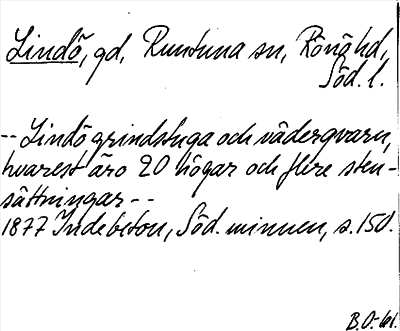 Lindö, gd, Runtuna sn, Rönö hd,
Söd. l.
-- Lindö grindstuga och vädergvarn,
hvarest äro 20 högar och flere sten-
sättningar --
1877 Indebetou, Söd. minnen, s. 150.
B.O-lei.